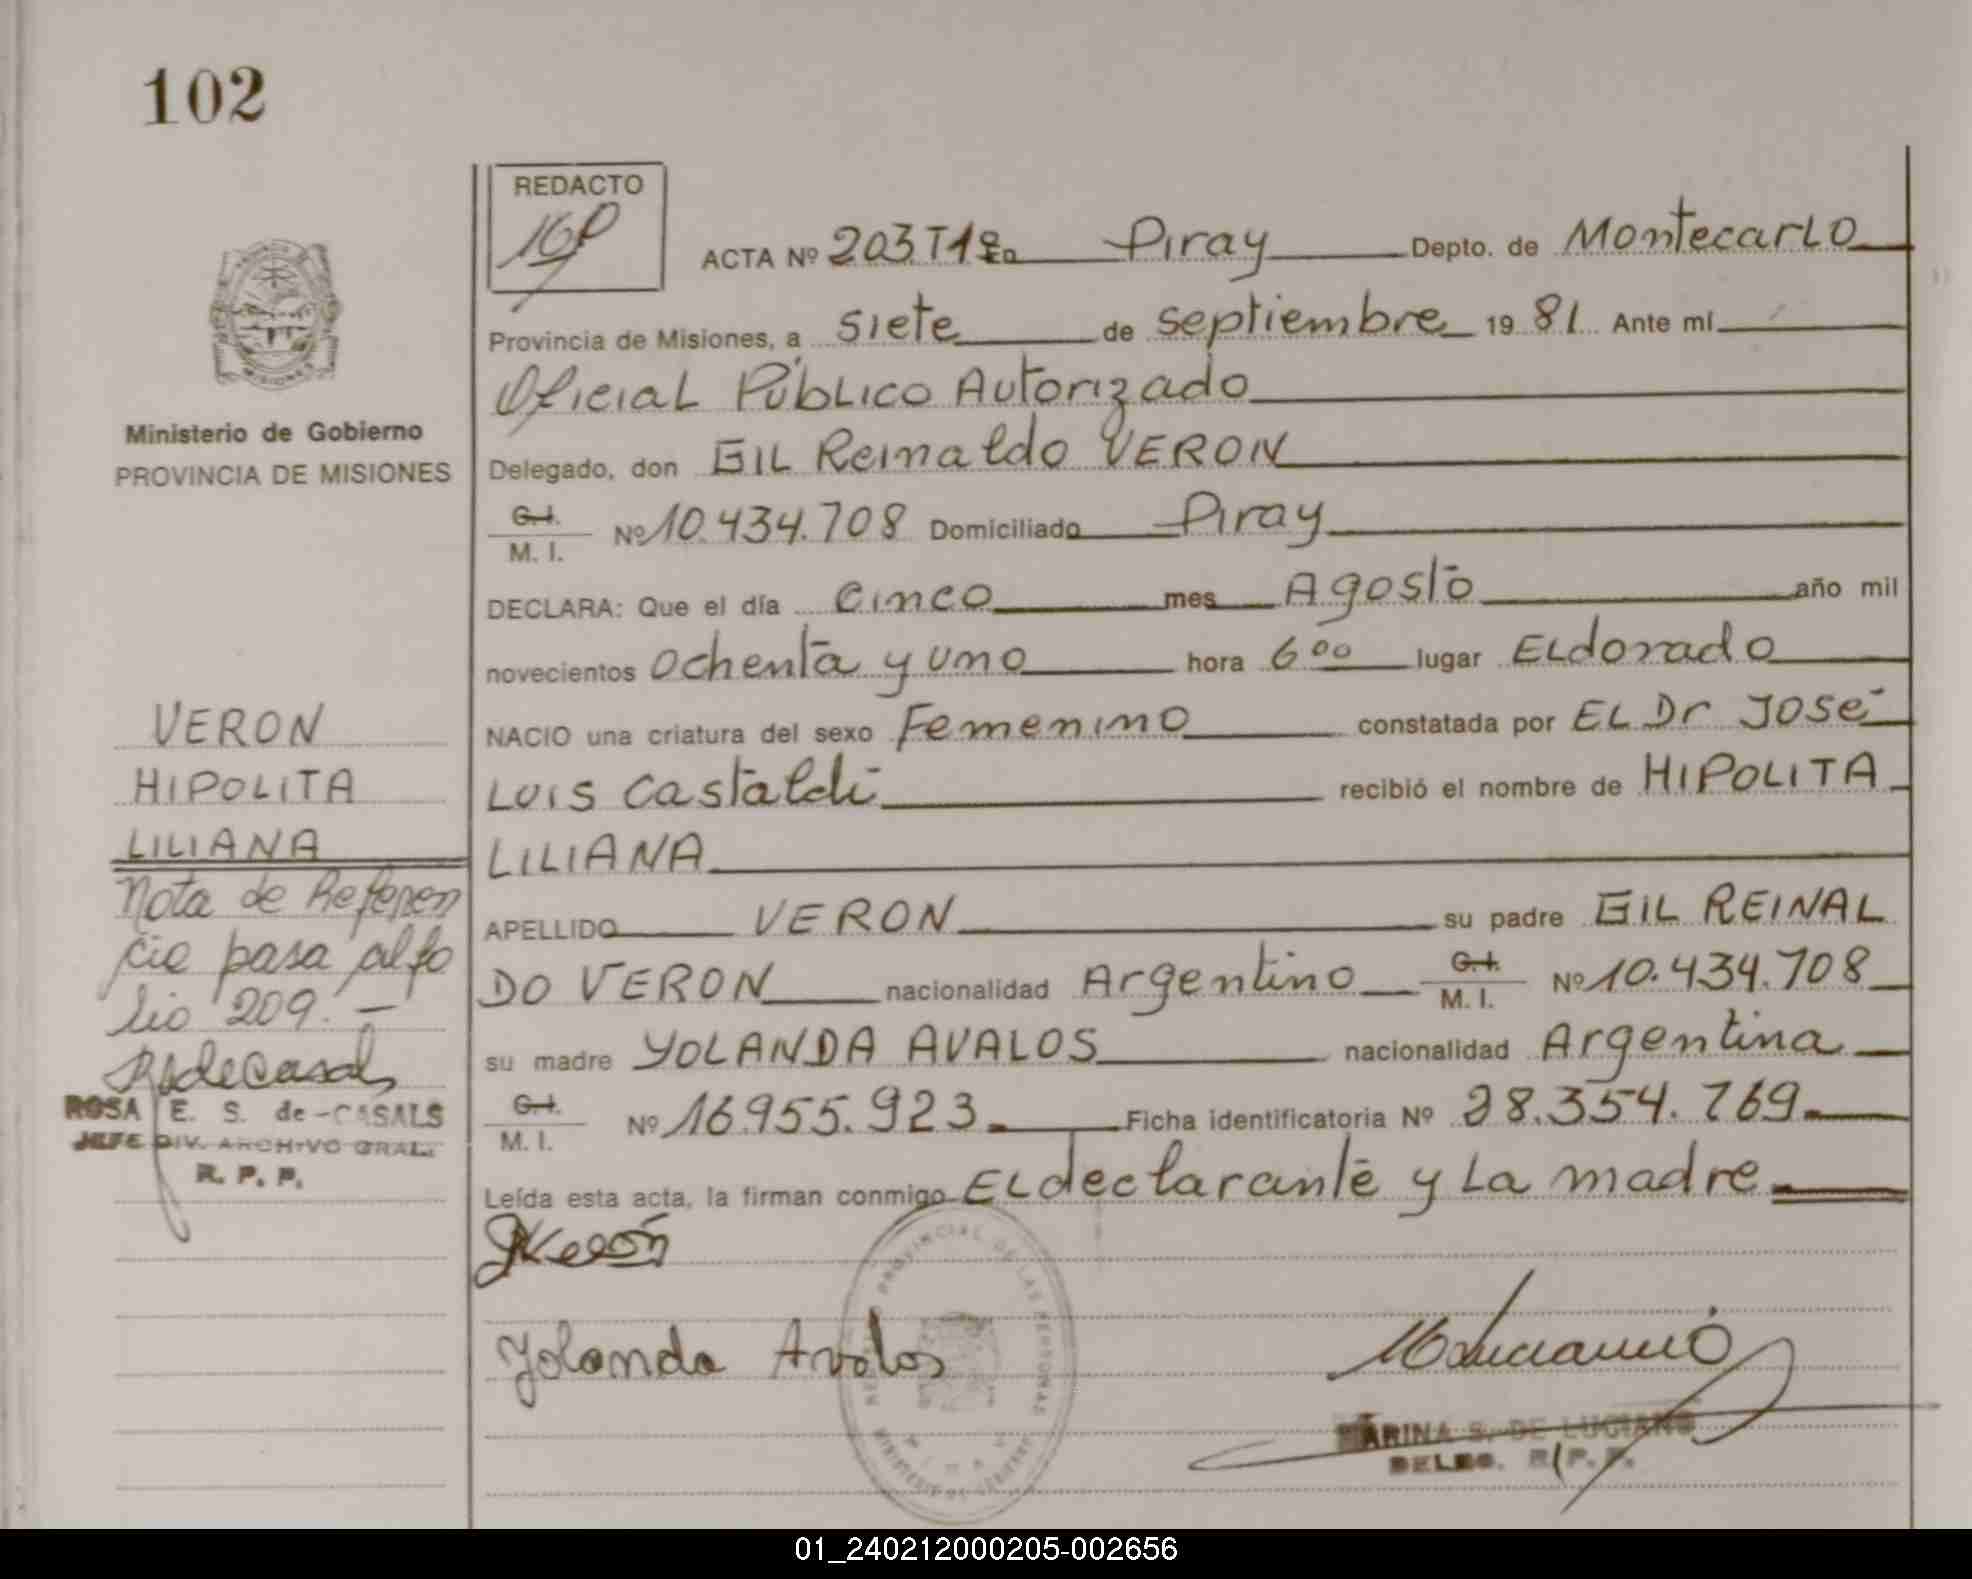 102
REDACTO
ACTA Nº 203 T1º Piray Depto. de Montecarlo
Provincia de Misiones, a siete de septiembre 19 81 Ante mí
Oficial Público Autorizado
Delegado, don GIL Reinaldo VERON
C.I. M. I. Nº 10.434.708 Domiciliado Piray
DECLARA: Que el día cinco mes Agosto año mil
novecientos ochenta y uno hora 6 00 lugar ELdorado
NACIO una criatura del sexo Femenino constatada por EL Dr José
Luis Castaldi recibió el nombre de HIPOLITA
LILIANA
APELLIDO VERON su padre GIL REINAL
DO VERON nacionalidad Argentino C.I. M. I. Nº 10.434.708
su madre YOLANDA AVALOS nacionalidad Argentina
C.I. M. I. Nº 16.955.923 Ficha identificatoria Nº 28.354.769
Leída esta acta, la firman conmigo EL declarante y La madre
Verón
Yolanda Avalos
MARINA S. DE LUCIANO
DELEG. R.P.P.
MISIONES
Ministerio de Gobierno
PROVINCIA DE MISIONES
VERON
HIPOLITA
LILIANA
Nota de Referen
cia pasa al fo
lio 209. -
RSdeCasals
ROSA E. S. de CASALS
JEFE DIV. ARCHIVO GRAL.
R. P. P.
PROVINCIAL DE LAS PERSONAS
MINISTERIO DE GOBIERNO
01_240212000205-002656